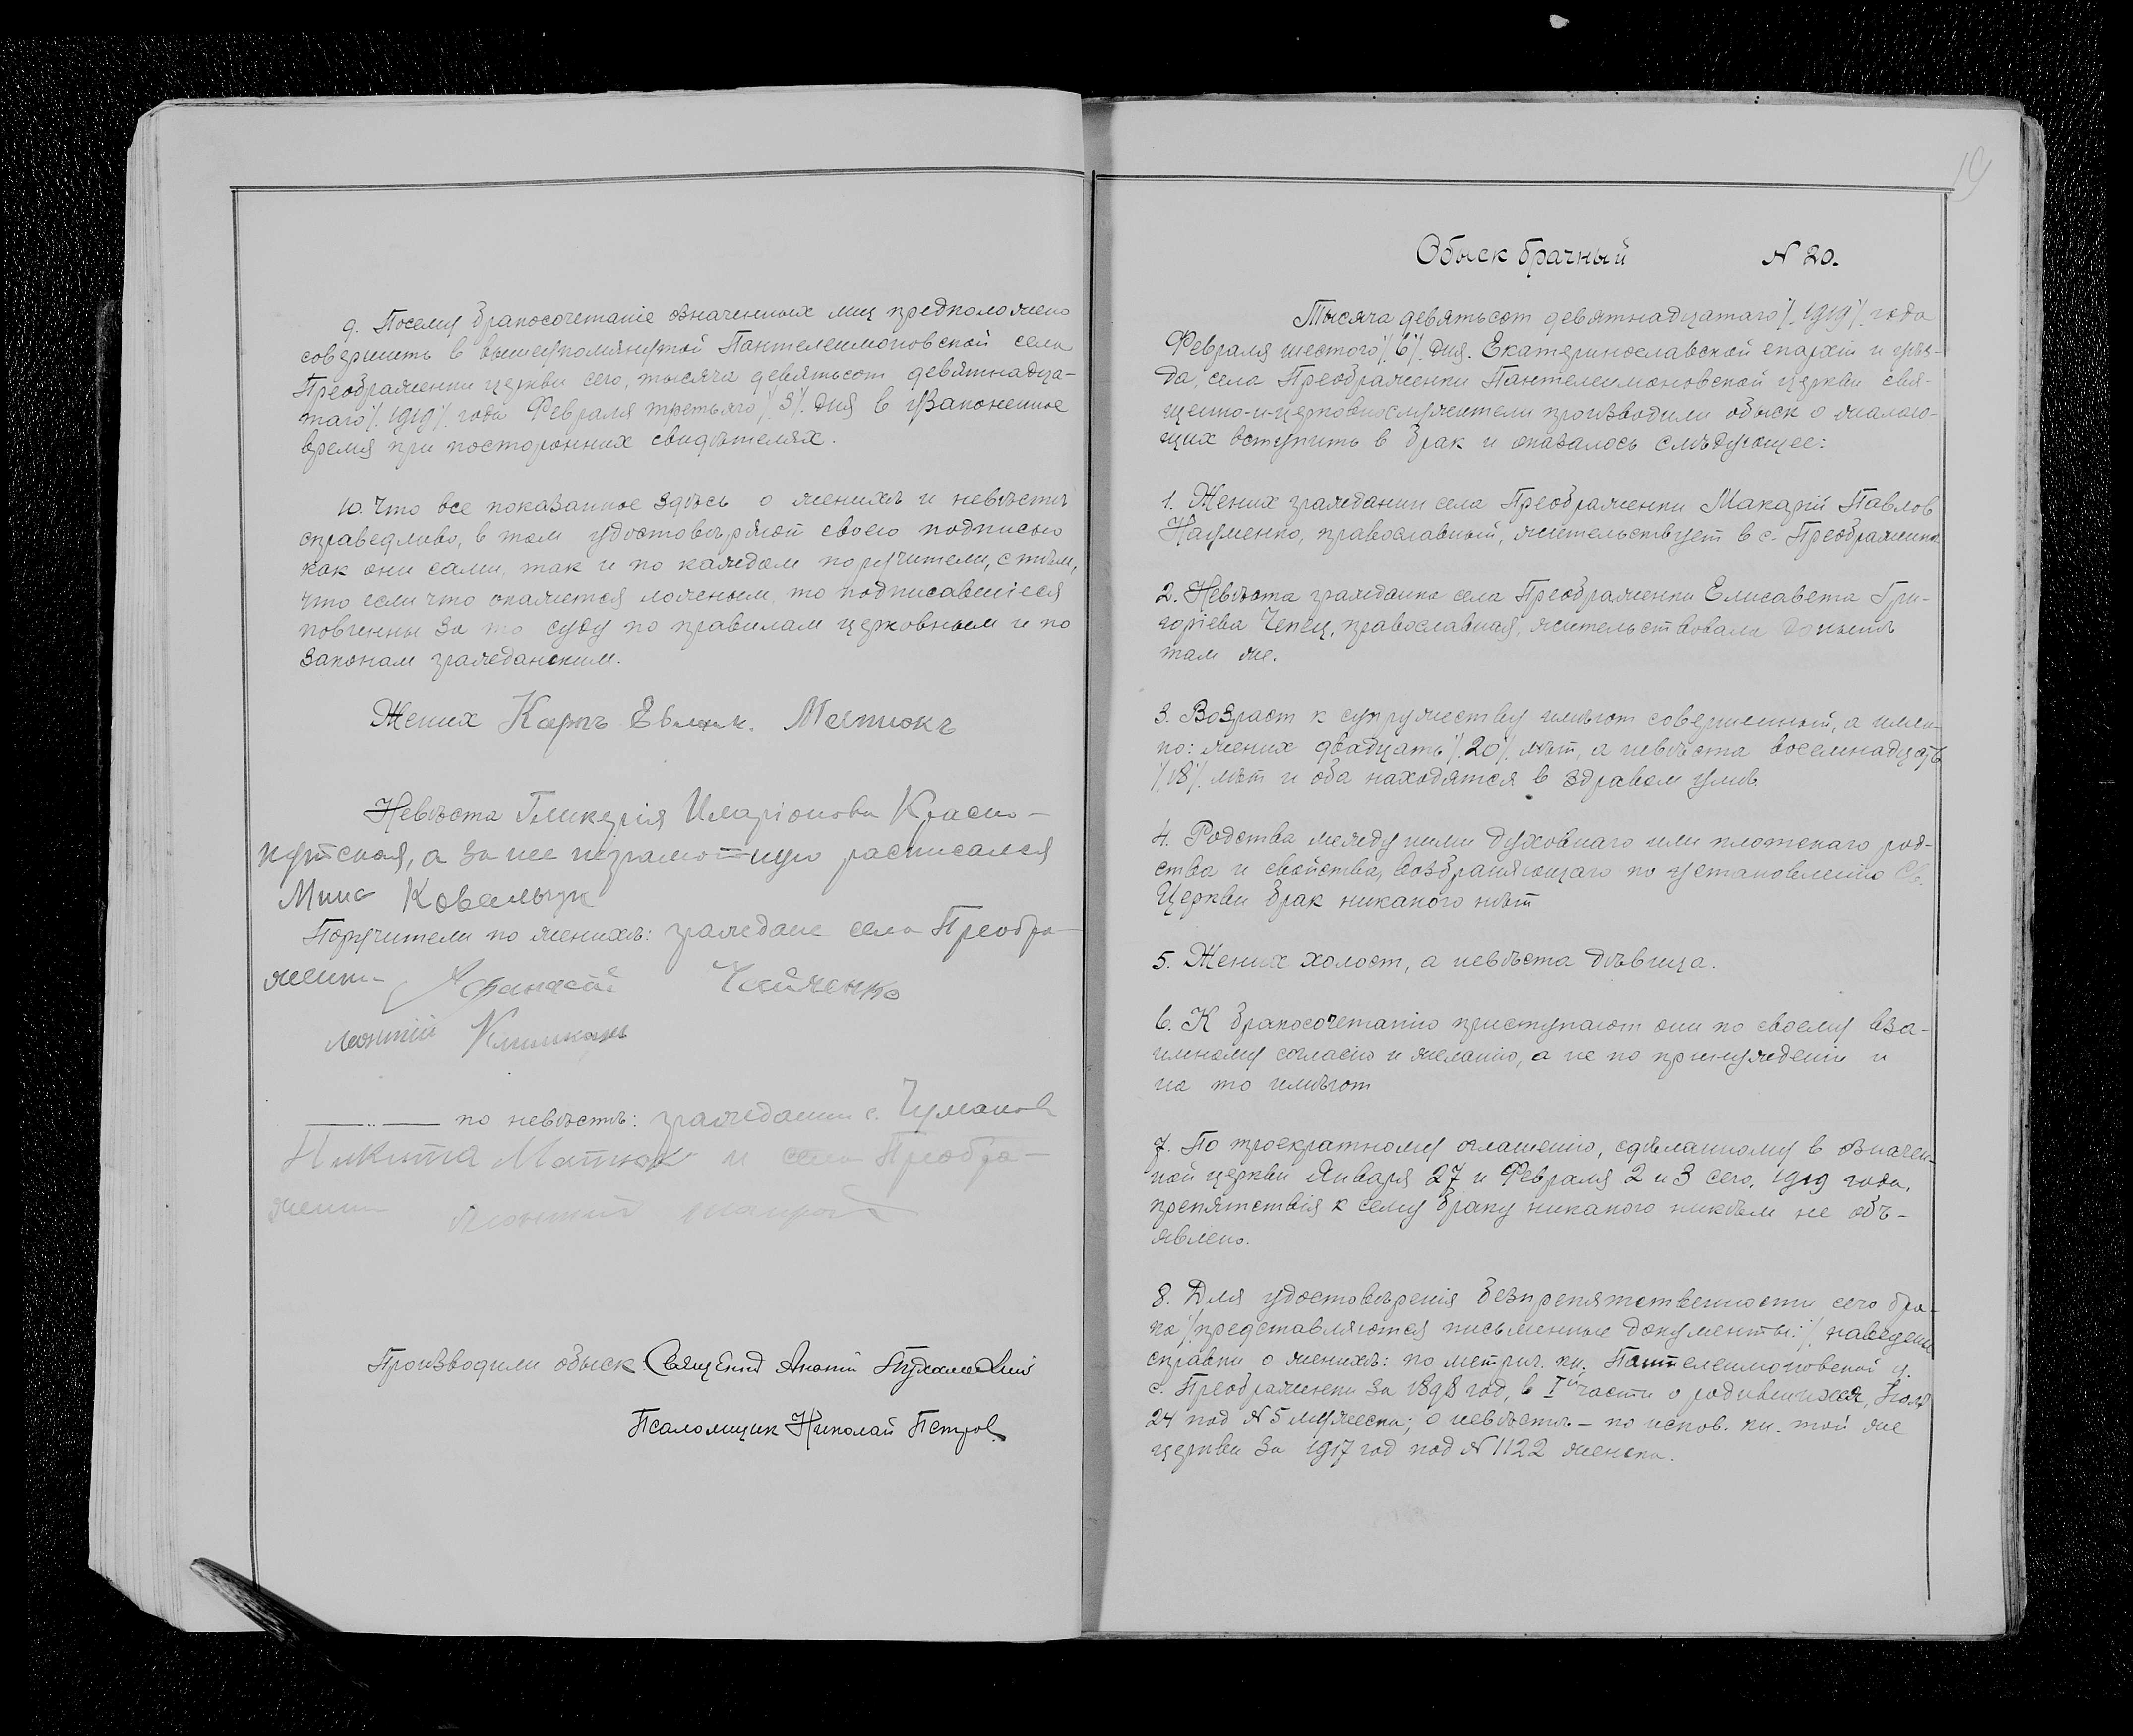 9. Посему бракосочетаніе означенных лиц предположено
совершить в вышеупомянутой Пантелеимоновской села
Преображенки церкви сего, тысяча девятьсот девятнадца-
таго /. 1919 /. года Февраля третьяго /. 3 /. дня в узаконенное
время при посторонних свидѣтелях.
10. Что все показанное здѣсь о женихѣ и невѣстѣ
справедливо, в том удостовѣряют своею подписью
как они сами, так и по каждом поручители, с тѣм,
что если что окажется ложным, то подписавшіеся
повинны за то суду по правилам церковным и по
законам гражданским.
Жених Карпъ Матюкъ
Невѣста Гликерія Иларіонова Красно-
кутская, а за нее неграмотную расписался
Мина Ковальчук
Поручители по женихѣ: граждане села Преобра-
женки Афанасій
Леонтій
— „ — по невѣстѣ: гражданин с.
Никита Матюк и села Преобра-
женки
Производили обыск Священник
Псаломщик Николай Петров
19
Обыск брачный № 20.
Тысяча девятьсот девятнадцатаго /. 1919 /. года
Февраля шестого /. 6 /. дня. Екатеринославской епархіи и уѣз-
да, села Преображенки Пантелеимоновской церкви свя-
щенно-и-церковнослужители производили обыск о желаю-
щих вступить в брак и оказалось слѣдующее:
1. Жених гражданин села Преображенки Макарій Павлов
Науменко, православный, жительствует в с. Преображенкѣ
2. Невѣста гражданка села Преображенки Елисавета Гри-
горіева Чепец, православная, жительствовала донынѣ
там же.
3. Возраст к супружеству имѣют совершенный, а имен-
но: жених двадцать /. 20 /. лѣт, а невѣста восемнадцать
/. 18 /. лѣт и оба находятся в здравом умѣ.
4. Родства между ними духовнаго или плотскаго род-
ства и свойства, возбраняющаго по установленію Св.
Церкви брак никакого нѣт
5. Жених холост, а невѣста дѣвица.
6. К бракосочетанію приступают они по своему вза-
имному согласію и желанію, а не по принужденію и
на то имѣют
7. По троекратному оглашенію, сдѣланному в означен-
ной церкви Января 27 и Февраля 2 и 3 сего, 1919 года,
препятствія к сему браку никакого никѣм не объ-
явлено.
8. Для удостовѣренія безпрепятственности сего бра-
ка /. представляются письменные документы: /. наведены
справки о женихѣ: по метрич. кн. Пантелеимоновской ц.
с. Преображенки за 1898 год, в I й части о родившихся,
24 под № 5 мужеска; о невѣстѣ — по испов. кн. той же
церкви за 1917 год под № 1122 женска.